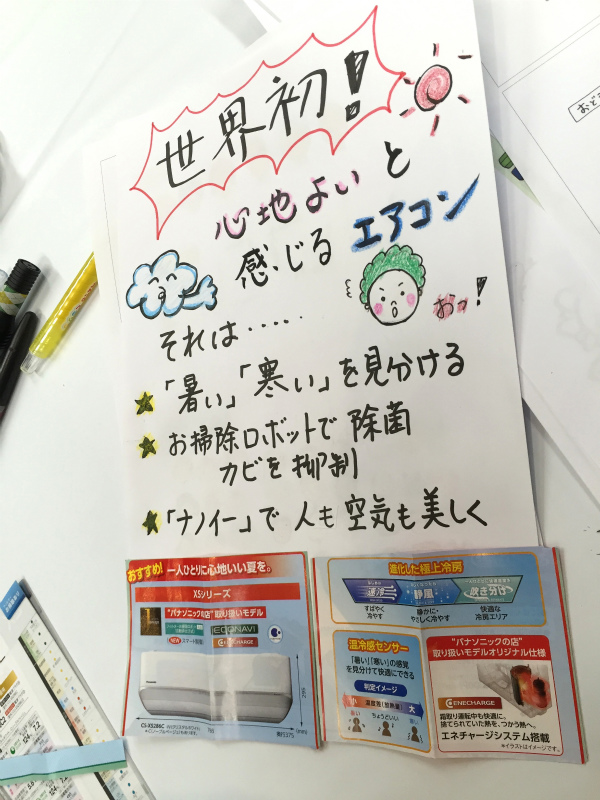 世界初!
心地よいと
感じるエアコン
おっ!
それは・・・・・
「暑い」「寒い」を見分ける
お掃除ロボットで除菌
カビを抑制
「ナノイー」で人も空気も美しく
おすすめ! 一人ひとりに心地いい夏を。
XSシリーズ
"パナソニックの店"取り扱いモデル
ECONAVI
ENECHARGE
CS-XS286C
進化した極上冷房
速冷
静風
吹き分け
すばやく
冷やす
静かに・
やさしく冷やす
快適な
冷房エリア
温冷感センサー
「暑い」「寒い」の感覚
を見分けて快適に
判定イメージ
小 温度差(放熱量) 大
ちょうどいい
"パナソニックの店"
取り扱いモデルオリジナル仕様
ENECHARGE
霜取り運転中も快適に。
捨てられていた熱を、つかう熱へ。
エネチャージシステム搭載
*イラストはイメージです。